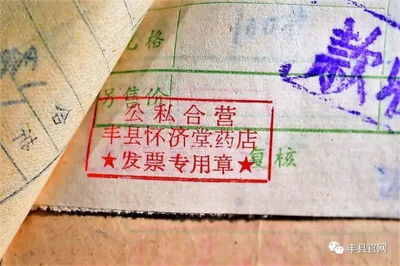 价格
另售价
公私合营
丰县怀济堂药店
★发票专用章★
复核
款
丰县官网